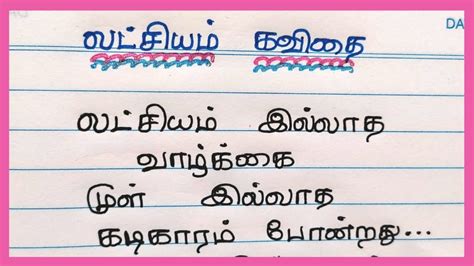 DA
லட்சியம் கவிதை
லட்சியம் இல்லாத
வாழ்க்கை
முள் இல்லாத
கடிகாரம் போன்றது...